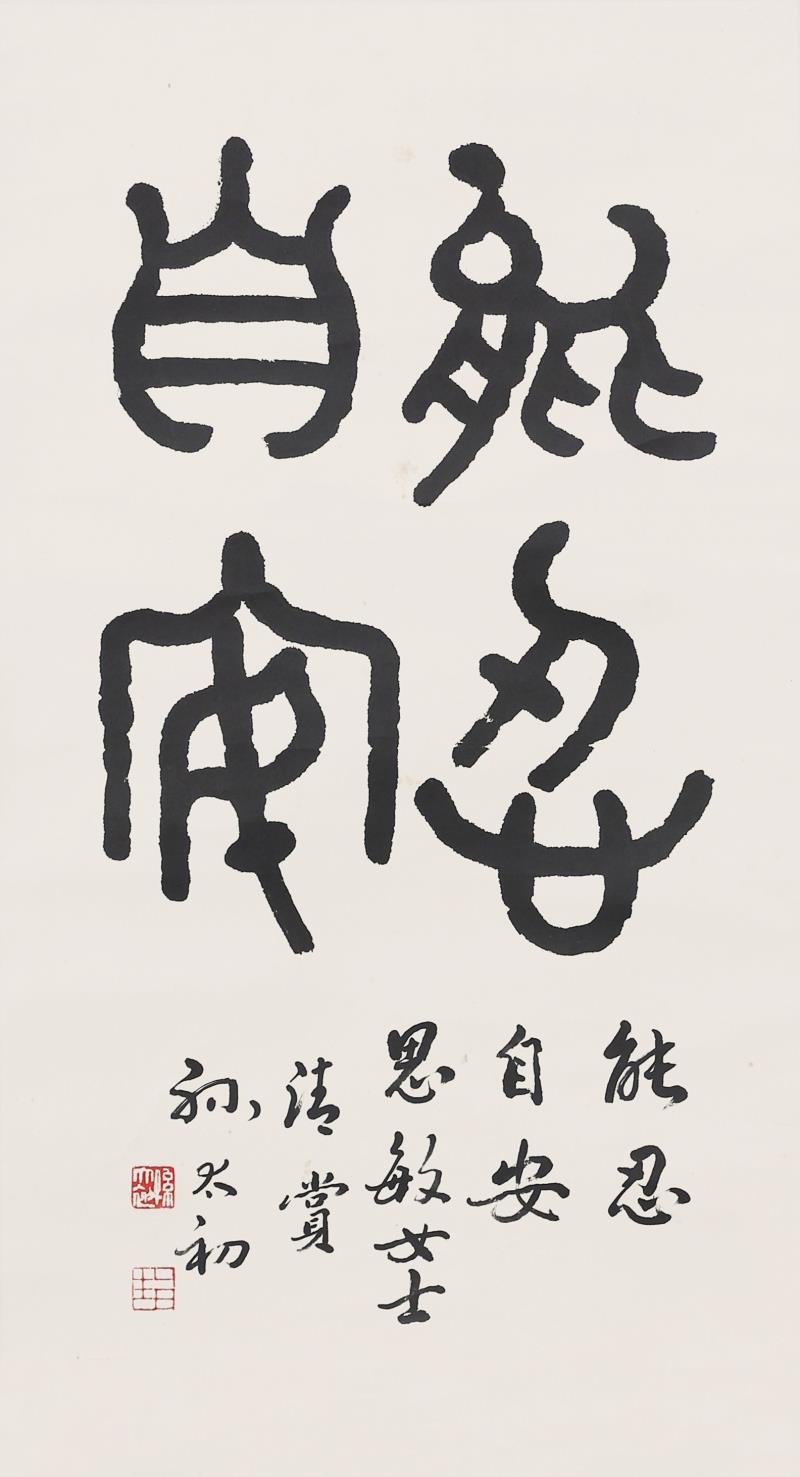 能忍
自安
能忍
自安
思敏女士
清賞
孫太初
孫太初